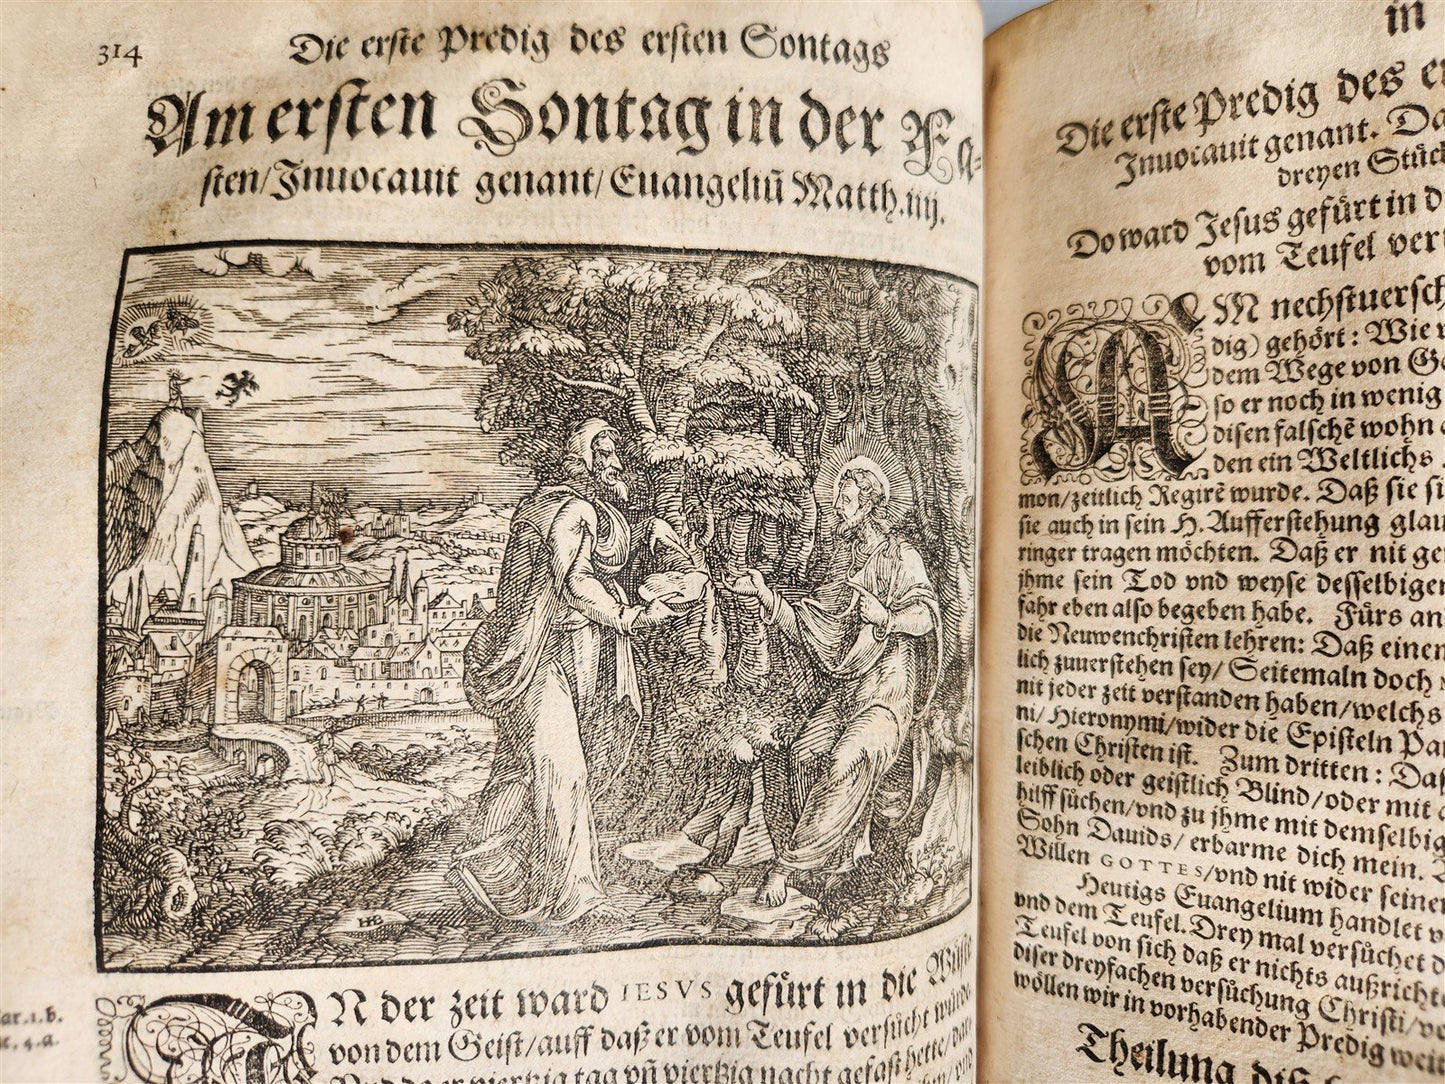 314
Die erste Predig des ersten Sontags
Am ersten Sontag in der Fa-
sten/Jnuocauit genant/Euangeliũ Matth.iiij.
HB
JN der zeit ward IESVS gefürt in die Wüste
von dem Geist/auff daß er vom Teufel versůcht würde.
Vnd da er viertzig tag vñ viertzig nacht gefast hette/
ar.1.b.
4.a.
in
Die erste Predig des
Jnuocauit genant.
dreyen
Do ward Jesus gefürt in
vom Teufel
AM nechst
dig) gehört: Wie
dem Wege von
so er noch in wenig
disen falschē wohn
den ein Weltlichs
mon/zeitlich Regirē wurde. Daß sie
sie auch in sein H. Aufferstehung
ringer tragen möchten. Daß er nit
jhme sein Tod vnd weyse desselbigen
fahr eben also begeben habe. Fürs
die Neuwenchristen lehren: Daß einem
lich zuuerstehen sey/ Seitemaln doch
nit jeder zeit verstanden haben/welchs
ni/Hieronymi/wider die Episteln
schen Christen ist. Zum dritten: Daß
leiblich oder geistlich Blind/oder mit
hilff sůchen/vnd zu jhme mit demselbigen
Sohn Dauids/ erbarme dich mein.
Willen GOTTES/vnd nit wider seinen
Heutigs Euangelium handlet
vnd dem Teufel. Drey mal versůchet
Teufel von sich daß er nichts
diser dreyfachen versůchung Christi/
wöllen wir in vorhabender Predig
Theilung